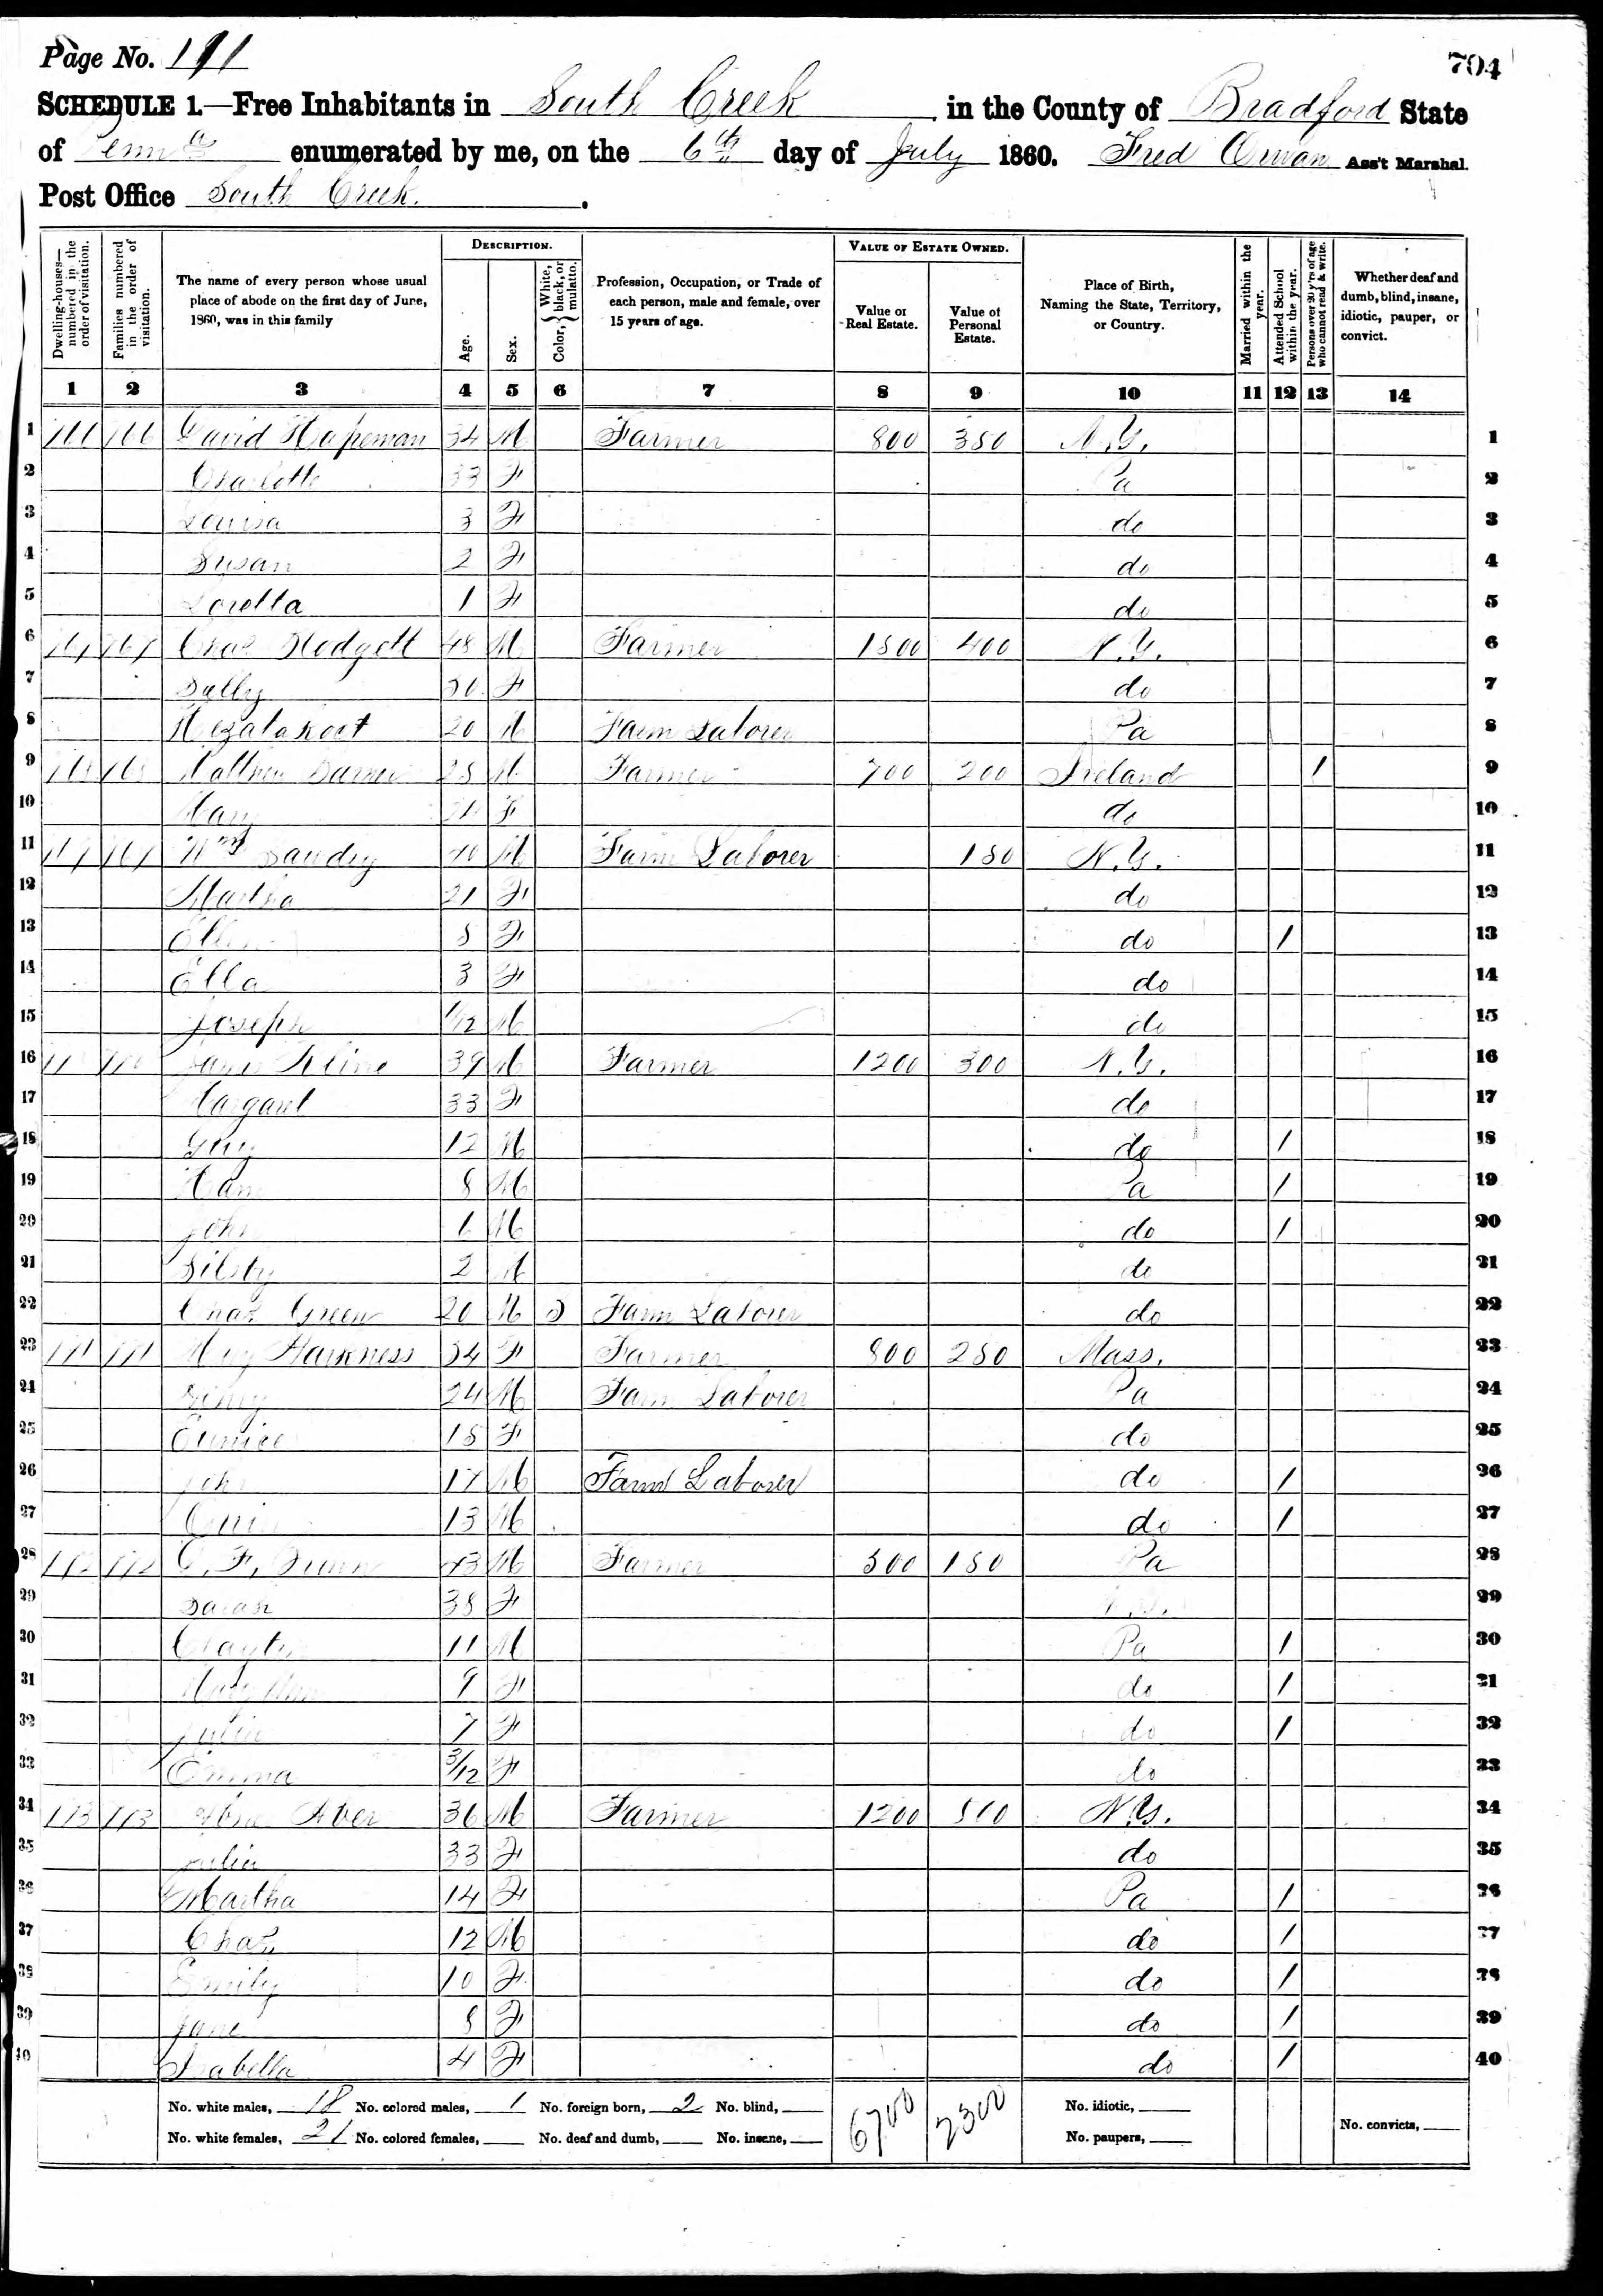 Page No. 191
704
SCHEDULE 1.—Free Inhabitants in South Creek in the County of Bradford State
of Penna enumerated by me, on the 6th day of July 1860. Fred Orwan Ass't Marshal.
Post Office South Creek.
Dwelling-houses—numbered in the order of visitation.
Families numbered in the order of visitation.
The name of every person whose usual place of abode on the first day of June, 1860, was in this family
DESCRIPTION.
Age.
Sex.
Color, White, black, or mulatto.
Profession, Occupation, or Trade of each person, male and female, over 15 years of age.
VALUE OF ESTATE OWNED.
Value of Real Estate.
Value of Personal Estate.
Place of Birth, Naming the State, Territory, or Country.
Married within the year.
Attended School within the year.
Persons over 20 y'rs of age who cannot read & write.
Whether deaf and dumb, blind, insane, idiotic, pauper, or convict.
1 2 3 4 5 6 7 8 9 10 11 12 13 14
1 166 166 David Hapeman 34 M Farmer 800 350 N.Y. 1
2 Charlotte 33 F Pa 2
3 Louisa 3 F do 3
4 Susan 2 F do 4
5 Loretta 1 F do 5
6 167 167 Chas Blodgett 48 M Farmer 1500 400 N.Y. 6
7 Sally 50 F do 7
8 20 M Farm Laborer Pa 8
9 168 168 28 M Farmer 700 200 Ireland 1 9
10 Mary 21 F do 10
11 169 169 Wm 40 M Farm Laborer 150 N.Y. 11
12 Martha 21 F do 12
13 Ellen 8 F do 1 13
14 Ella 3 F do 14
15 Joseph 1/12 M do 15
16 170 170 James Kline 39 M Farmer 1200 300 N.Y. 16
17 Margaret 33 F do 17
18 Guy 12 M do 1 18
19 8 M Pa 1 19
20 John 6 M do 1 20
21 2 M do 21
22 Chas Green 20 M Farm Laborer do 22
23 171 171 Harkness 54 F Farmer 800 250 Mass. 23
24 24 M Farm Laborer Pa 24
25 Eunice 18 F do 25
26 John 17 M Farm Laborer do 1 26
27 13 M do 1 27
28 172 172 43 M Farmer 500 150 Pa 28
29 Sarah 38 F N.Y. 29
30 Clayton 11 M Pa 1 30
31 Mary Ann 9 F do 1 31
32 Julia 7 F do 1 32
33 Emma 3/12 F do 33
34 173 173 Aber 36 M Farmer 1200 500 N.Y. 34
35 Julia 33 F do 35
36 Martha 14 F Pa 1 36
37 Chas 12 M do 1 37
38 Emily 10 F do 1 38
39 Jane 8 F do 1 39
40 Isabella 4 F do 1 40
No. white males, 18 No. colored males, 1 No. foreign born, 2 No. blind, 6700 2300 No. idiotic,
No. white females, 21 No. colored females, No. deaf and dumb, No. insane, No. paupers, No. convicts,